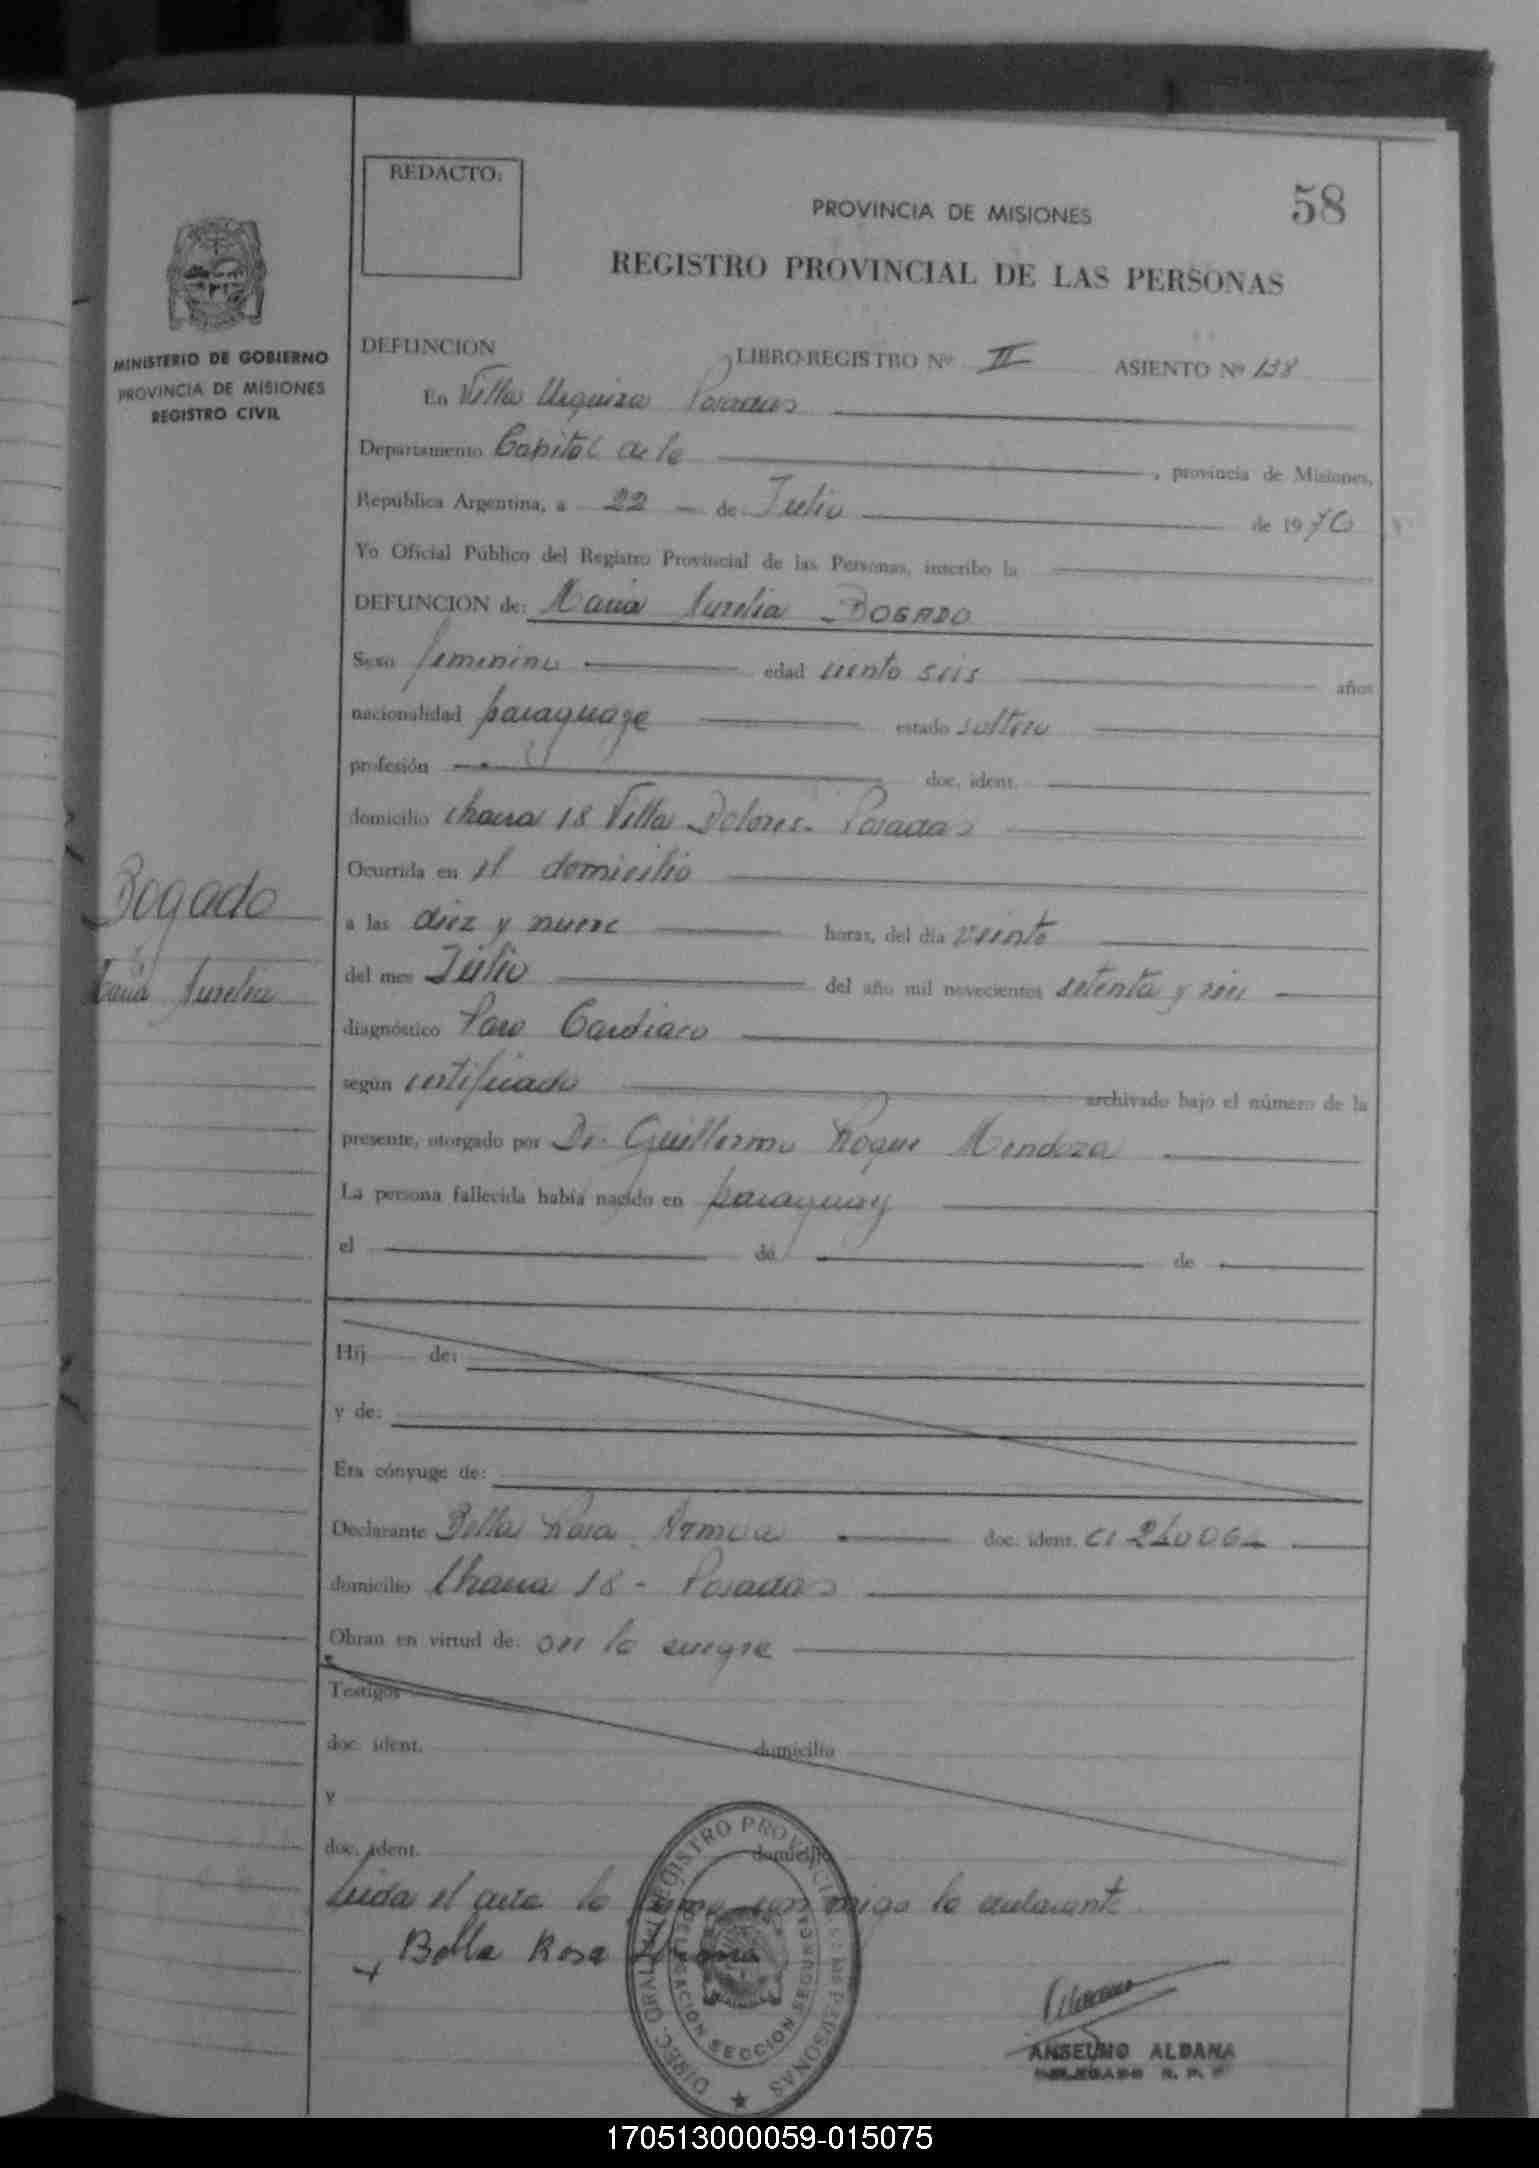 REDACTO:
58
PROVINCIA DE MISIONES
REGISTRO PROVINCIAL DE LAS PERSONAS
MINISTERIO DE GOBIERNO
PROVINCIA DE MISIONES
REGISTRO CIVIL
DEFUNCION LIBRO-REGISTRO Nº II ASIENTO Nº 138
En Villa Urquiza Posadas
Departamento Capital de la , provincia de Misiones,
República Argentina, a 22 de Julio de 1976
Yo Oficial Público del Registro Provincial de las Personas, inscribo la
DEFUNCION de: Maria Aurelia BOGADO
Sexo femenino edad ciento seis años
nacionalidad paraguaya estado soltera
profesión doc. ident.
domicilio chacra 18 Villa Dolores. Posadas
Ocurrida en el domicilio
Bogado
Maria Aurelia
a las diez y nueve horas, del día veinte
del mes Julio del año mil novecientos setenta y seis
diagnóstico Paro Cardiaco
según certificado archivado bajo el número de la
presente, otorgado por Dr. Guillermo Roque Mendoza
La persona fallecida había nacido en paraguay
el de de
Hij de:
y de:
Era cónyuge de:
Declarante Bella Rosa Armoa doc. ident. CI
domicilio Chacra 18 - Posadas
Obran en virtud de:
Testigos
doc. ident. domicilio
y
doc. ident. domicilio
Leida el acta la firma conmigo la declarante
Bella Rosa
DIREC. GRAL. DEL REGISTRO PROVINCIAL DE LAS PERSONAS
DELEGACION SECCION SEGUNDA
ANSELMO ALDANA
DELEGADO R. P. P.
170513000059-015075